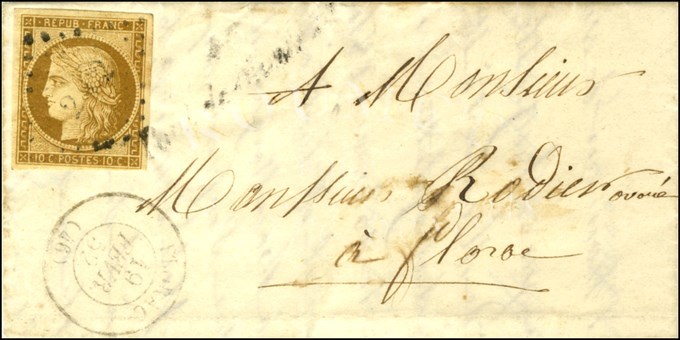 REPUB. FRANC.
10 C. POSTES 10 C.
A Monsieur
Monsieur Rodier avoué
à florac
FLORAC
19
FEVR
52
(46)